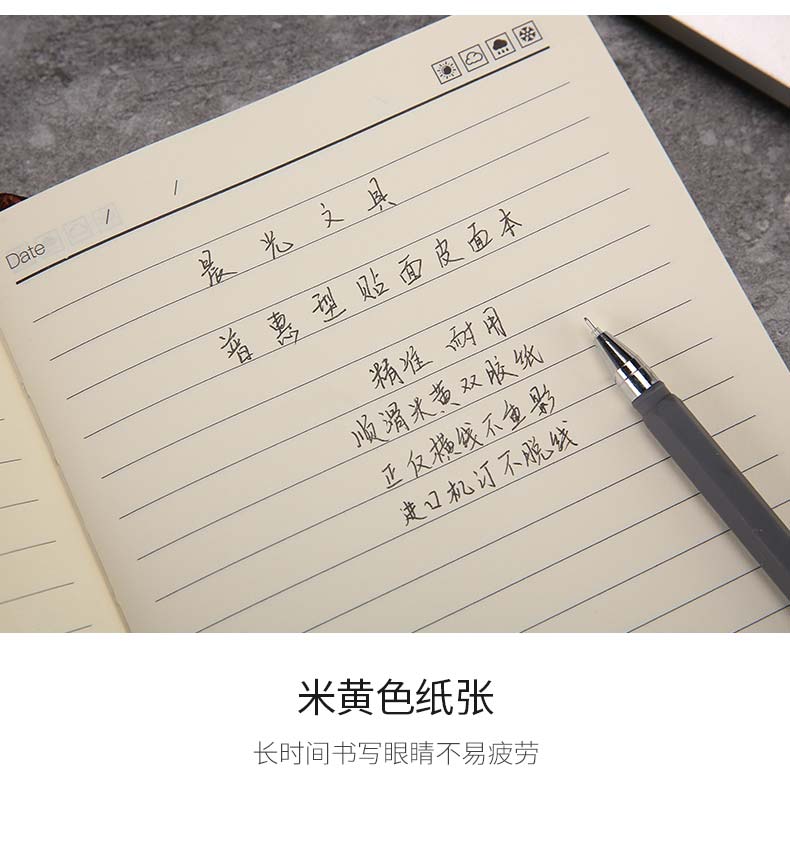 Date / /
晨光文具
普惠型贴面皮面本
精准 耐用
顺滑米黄双胶纸
正仅横线不重影
进口机订不脱线
米黄色纸张
长时间书写眼睛不易疲劳